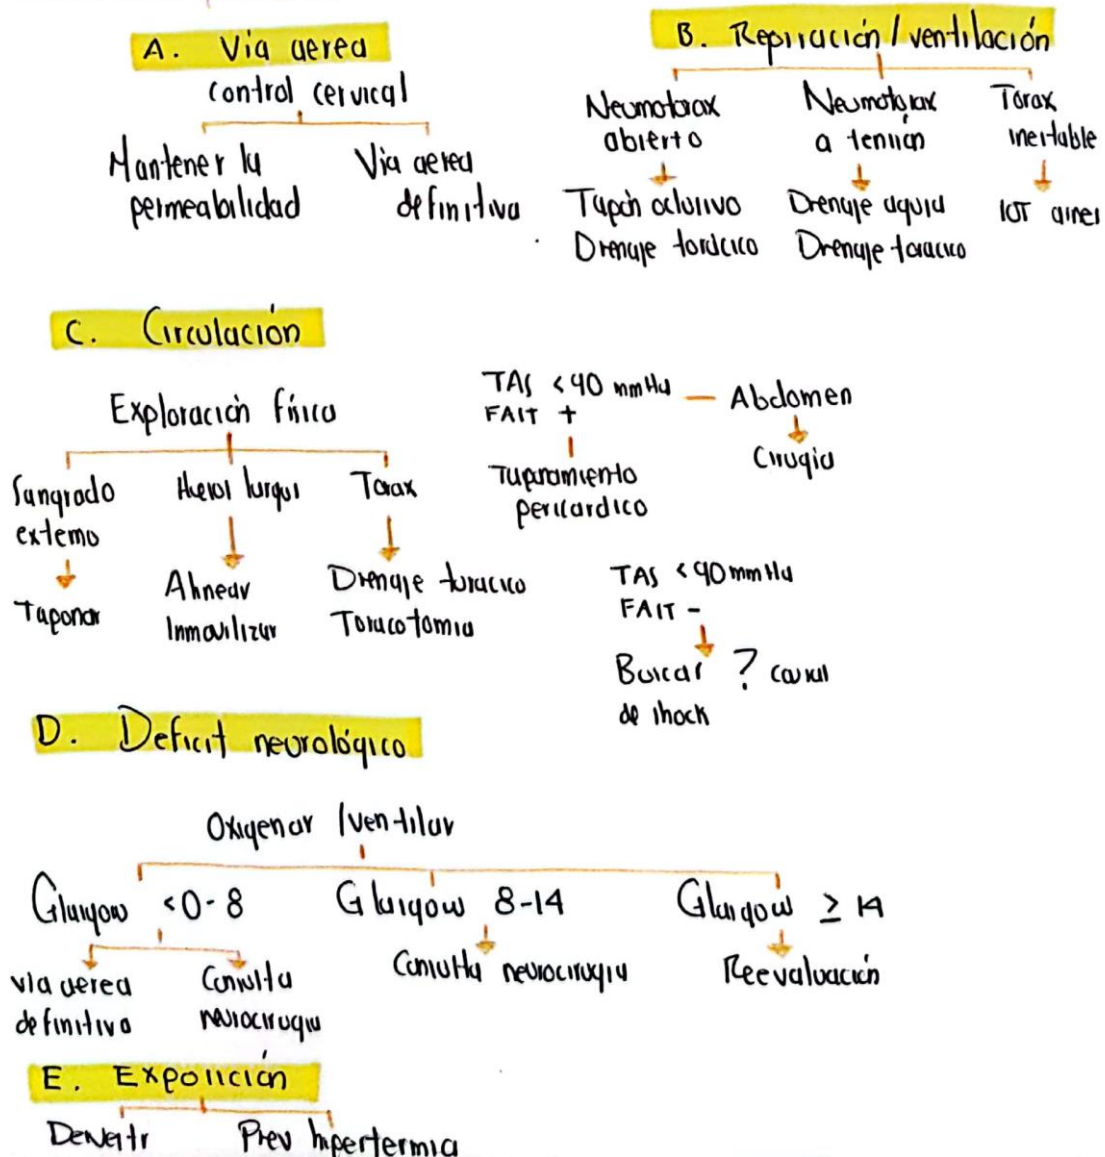 A. Via aerea
control cervical
Mantener la
permeabilidad
Via aerea
definitiva
B. Repiración / ventilación
Neumotorax
abierto
Tapón oclusivo
Drenaje torácico
Neumotorax
a tensión
Drenaje aguja
Drenaje toracico
Torax
inestable
IOT
C. Circulación
Exploración física
Sangrado
externo
Taponar
Huesos largos
Alinear
Inmovilizar
Torax
Drenaje toracico
Toracotomia
TAS <90 mmHg
FAST +
Taponamiento
pericardico
Abdomen
Cirugia
TAS <90 mmHg
FAST -
Buscar ? causas
de shock
D. Deficit neurológico
Oxigenar / ventilar
Glasgow <0-8
via aerea
definitiva
Consulta
neurocirugia
Glasgow 8-14
Consulta neurocirugia
Glasgow ≥ 14
Reevaluación
E. Exposición
Desvestir
Prev hipertermia